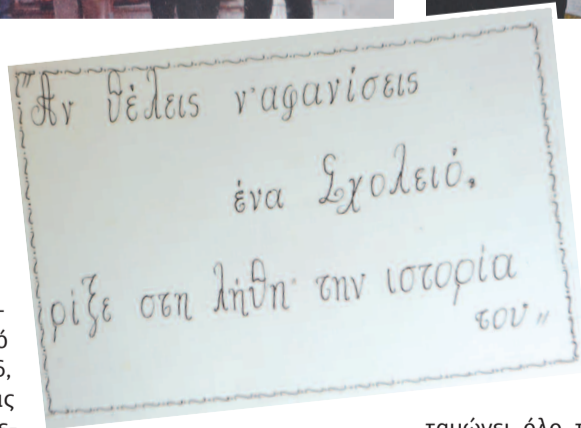 "Αν θέλεις ν'αφανίσεις
ένα Σχολειό,
ρίξε στη λήθη την ιστορία
του"
ό
6,
ας
ταμώνει όλο τ